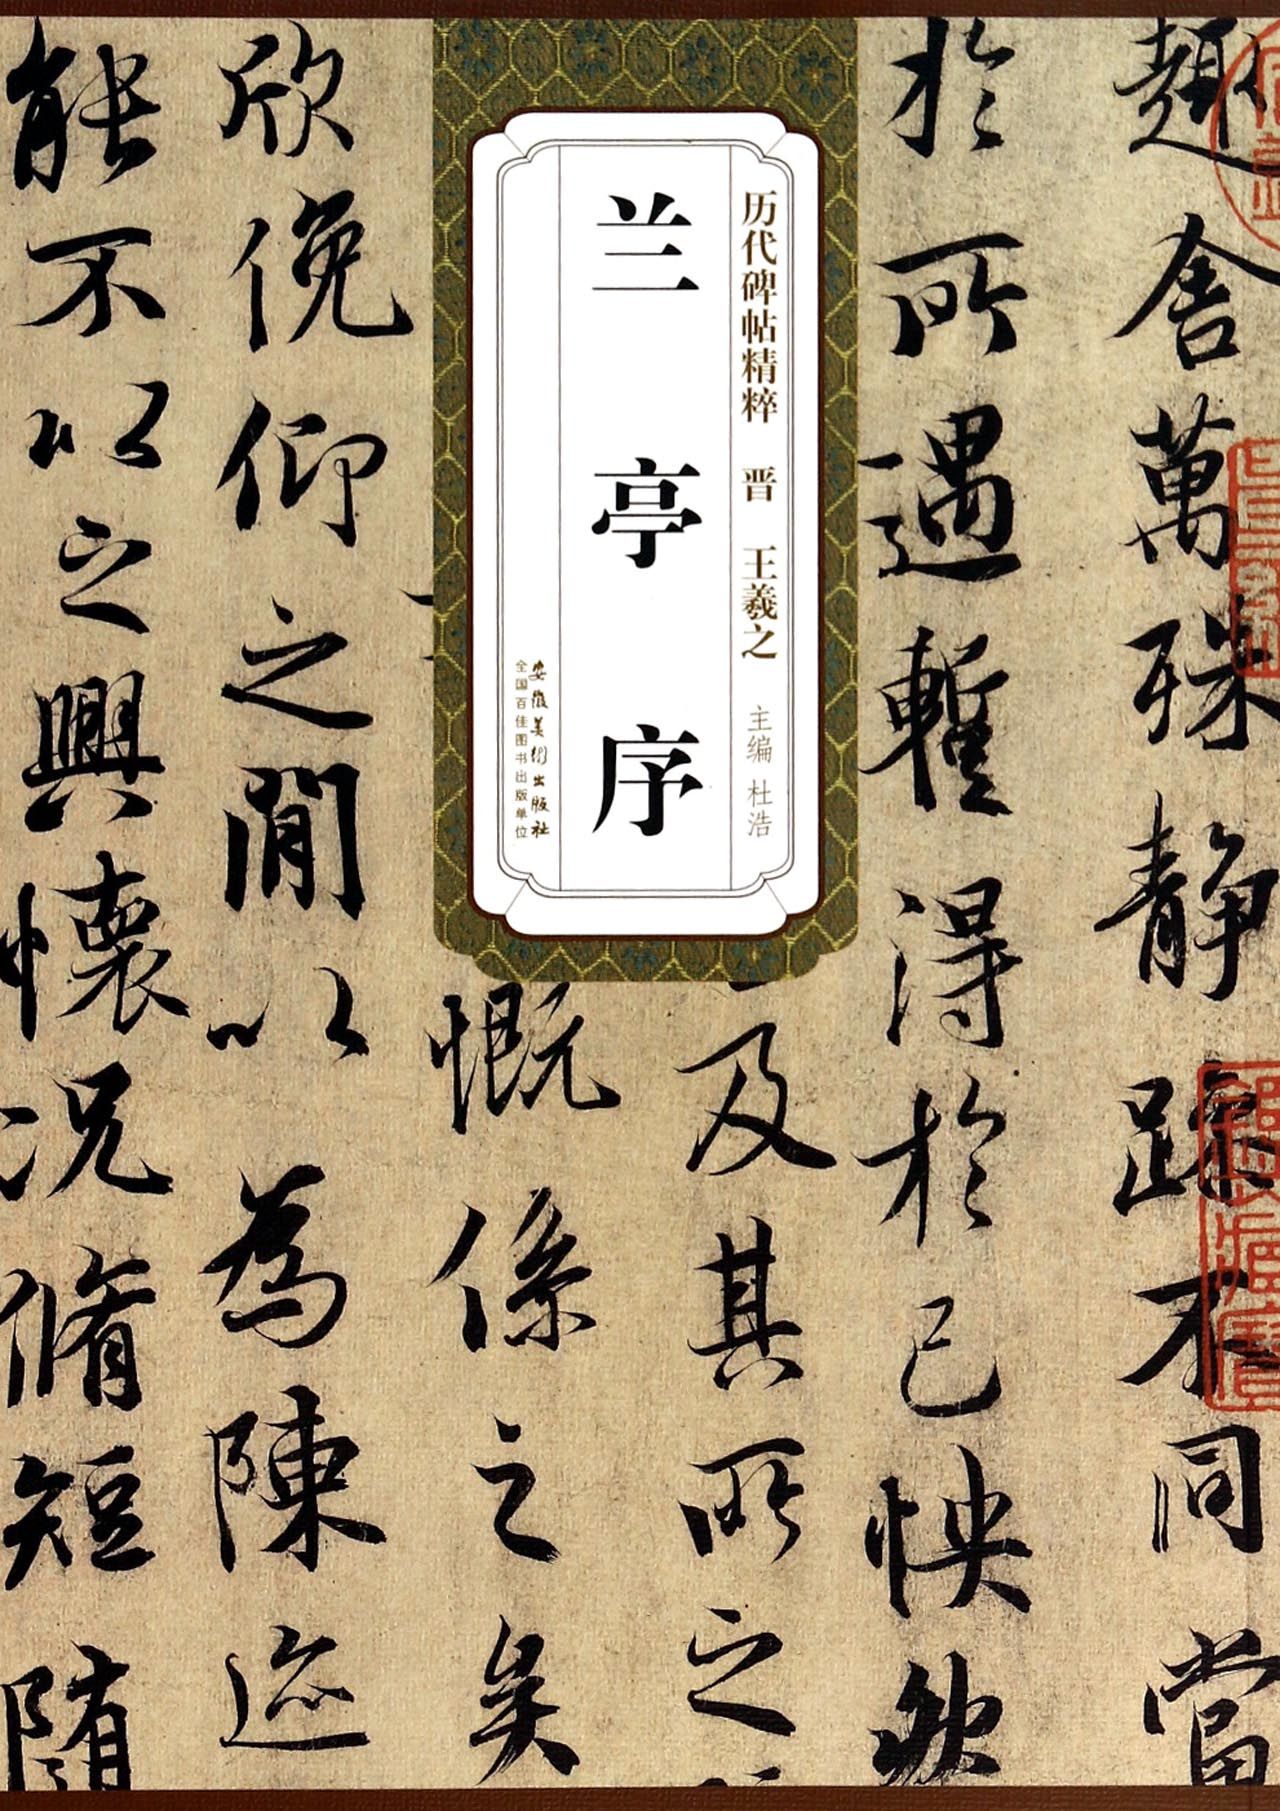 趣舍萬殊静躁不同當
於所遇蹔得於己怏然
及其所之
慨係之矣
欣俛仰之閒以為陳迹
能不以之興懷況脩短隨
历代碑帖精粹 晋 王羲之 主编 杜浩
兰亭序
安徽美术出版社
全国百佳图书出版单位